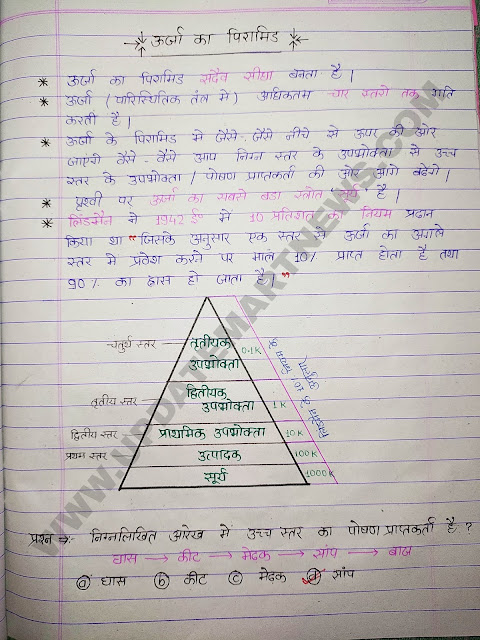 ऊर्जा का पिरामिड
* ऊर्जा का पिरामिड सदैव सीधा बनता है।
* ऊर्जा (पारिस्थितिक तंत्र में) अधिकतम चार स्तरों तक गति
करती है।
* ऊर्जा के पिरामिड में जैसे-जैसे नीचे से ऊपर की ओर
जाएंगे वैसे-वैसे आप निम्न स्तर के उपभोक्ता से उच्च
स्तर के उपभोक्ता / पोषण प्राप्तकर्ता की ओर आगे बढ़ेंगे।
* पृथ्वी पर ऊर्जा का सबसे बड़ा स्त्रोत सूर्य है।
* लिंडमैन ने 1942 ई० में 10 प्रतिशत का नियम प्रदान
किया था "जिसके अनुसार एक स्तर से ऊर्जा का अगले
स्तर में प्रवेश करने पर मात्र 10% प्राप्त होता है तथा
90% का ह्रास हो जाता है।"
चतुर्थ स्तर तृतीयक 0.1K
उपभोक्ता
तृतीय स्तर द्वितीयक
उपभोक्ता 1K
द्वितीय स्तर प्राथमिक उपभोक्ता 10K
प्रथम स्तर उत्पादक 100K
सूर्य 1000K
लिंडमैन के 10% नियम के अनुसार
प्रश्न → :- निम्नलिखित आरेख में उच्च स्तर का पोषण प्राप्तकर्ता है?
घास → कीट → मेढक → सांप → बाज
ⓐ घास ⓑ कीट ⓒ मेढक ⓓ सांप
WWW.UPDATE-MARTNEWS.COM